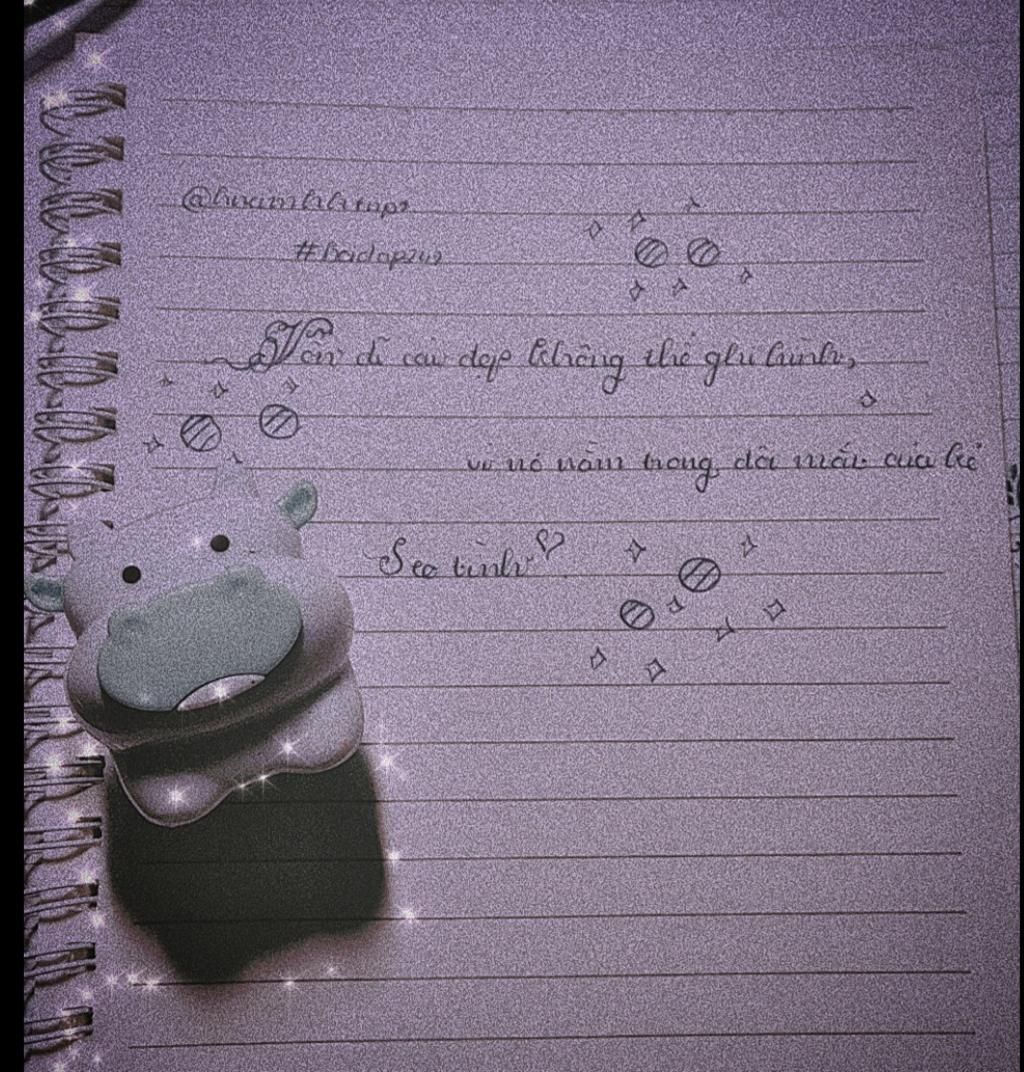 #Baidap242
Vốn dĩ cái đẹp không thể ghi hình,
vì nó nằm trong đôi mắt của kẻ
Seo tình